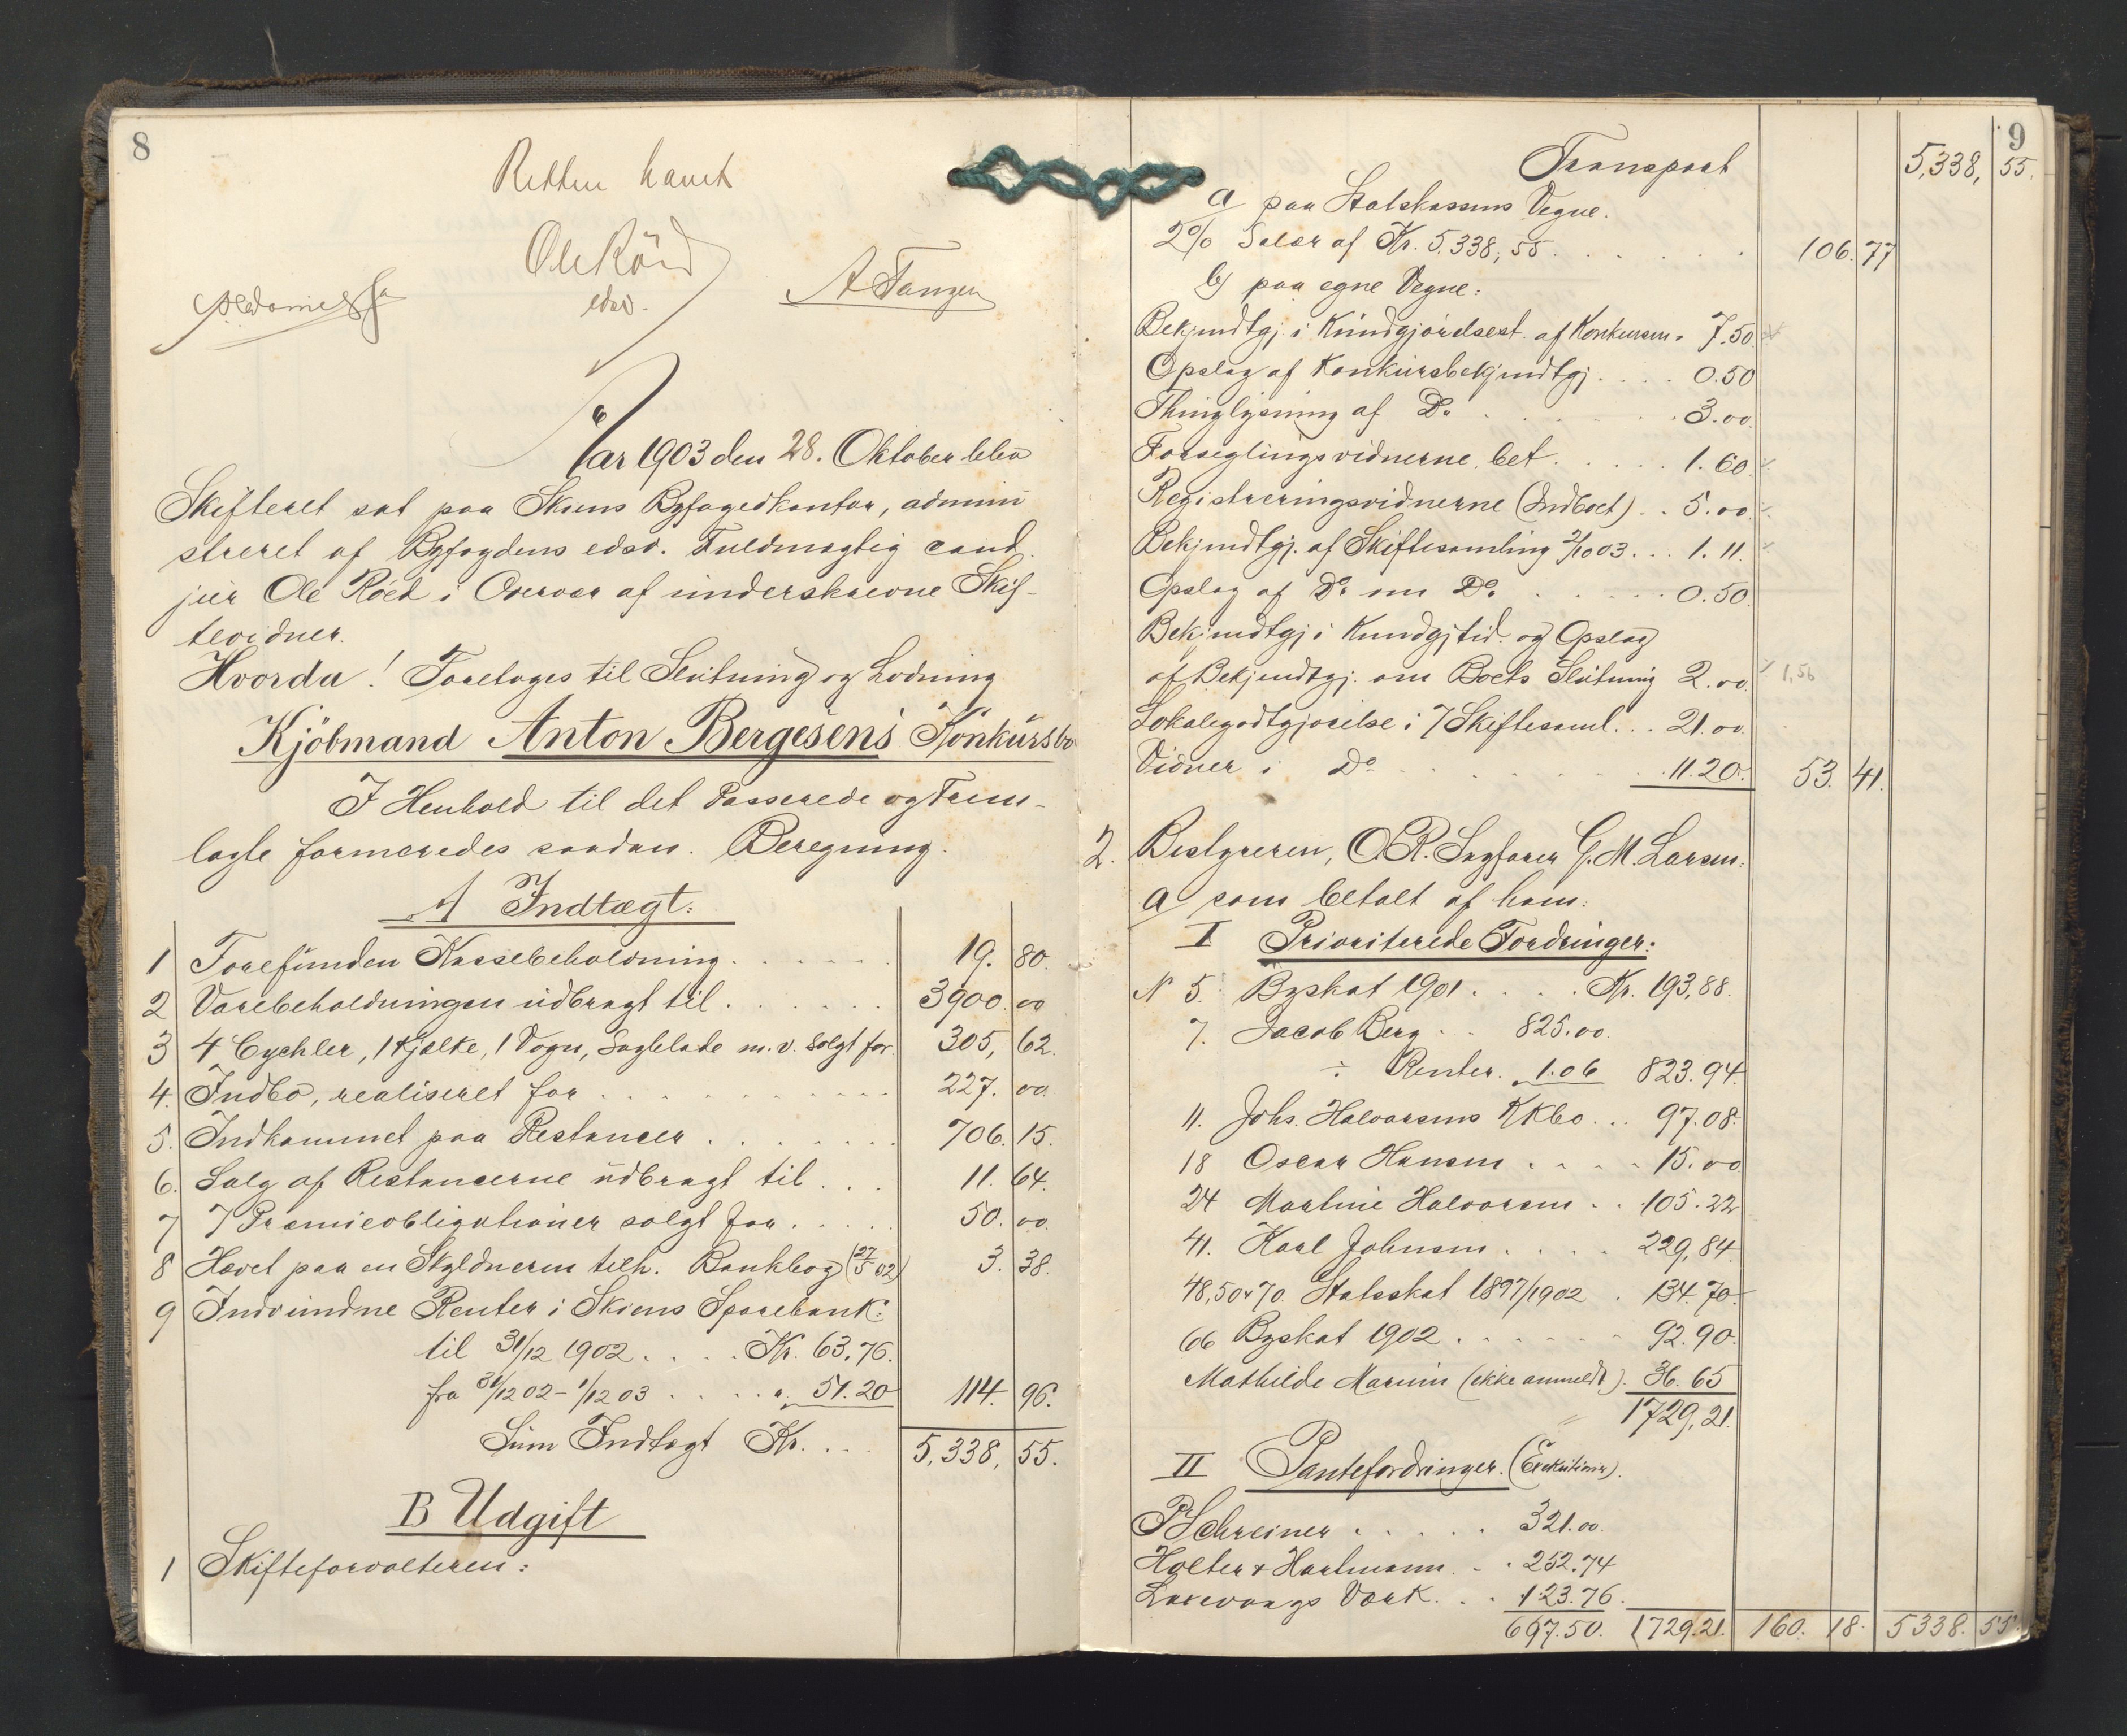 8
Retten hævet
Ole Röed
edsv.
A Tanzen
Aar 1903 den 28. Oktober blev
Skifteret sat paa Skiens Byfogedkontor, admini
streret af Byfogdens edsv. Fuldmægtig cand.
jur Ole Röed i Overvær af underskrevne Skif-
tevidner.
Hvorda! Foretoges til Slutning og Lodning
Kjöbmand Anton Bergesens Konkursbo
I Henhold til det Passerede og Frem-
lagte formeredes saadan. Beregning.
A Indtægt:
1 Forefunden Kassebeholdning . . . . . . 19. 80.
2 Varebeholdningen udbragt til . . . . . . 3900. 00
3 4 Cychler, 1 Kjælke, 1 Vogn, m.v. solgt for. 305, 62.
4. Indbo, realiseret for . . . . . . . . . . 227. 00.
5. Indkommet paa Restancer . . . . . . . 706. 15.
6. Salg af Restancerne udbragt til . . . 11. 64.
7 7 Præmieobligationer solgt for . . . . . 50. 00.
8 Hævet paa en Skyldneren tilh. Bankbog (27/5 02) 3. 38.
9 Indvundne Renter i Skiens Sparebank:
til 31/12 1902 . . . . Kr. 63.76.
fra 31/12 02 - 1/12 03 . . . . . 51.20 114. 96.
Sum Indtægt Kr. . . . 5,338, 55.
B Udgift
1 Skifteforvalteren:
9
Transport 5,338, 55.
a paa Statskassens Vegne.
2% Salær af Kr. 5.338,55 . . . . . . . 106. 77
b) paa egne Vegne:
Bekjendtgj. i Kundgjørelsest. af Konkursen. 7.50
Opslag af Konkursbekjendtgj. . . . . 0.50
Thinglysning af Do . . . . . . . 3.00.
Forseglingsvidnerne bet. . . . . . 1.60.
Registreringsvidnerne (Indboet) . . 5.00.
Bekjendtgj. af Skiftesamling 2/10 03 . . . 1.11.
Opslag af Do om Do . . . . . 0.50.
Bekjendtgj i Kundgj tid. og Opslag
af Bekjendtgj. om Boets Slutning 2.00. 1,56
Lokalegodtgjørelse i 7 Skiftesaml. . . 21.00.
Vidner i Do . . . . . . . 11.20. 53. 41.
2. Bestyreren, O.R. Sagfører G. M. Larsen:
a som betalt af ham:
I Prioriterede Fordringer:
N 5. Byskat 1901 . . . . Kr. 193,88.
7. Jacob Berg . . 825.00.
÷ Renter. 1.06 823.94.
11. Johs. Halvorsens KKbo . . . 97.08.
18 Oscar Hansen . . . . 15.00
24 Martine Halvorsen . . 105.22
41. Karl Johnsen . . . . 229,84
48, 50 & 70. Statsskat 1897/1902 . 134.70.
66 Byskat 1902 . . . . . . 92.90.
Mathilde (ikke anmeldt). 36.65
1729,21.
II Pantefordringer. (Exekutioner).
P Schreiner . . . . . 321.00.
Holter & Hartmann . . 252.74
Laxevaags Værk . . . 123.76.
697.50. 1729.21. 160. 18. 5338. 55.